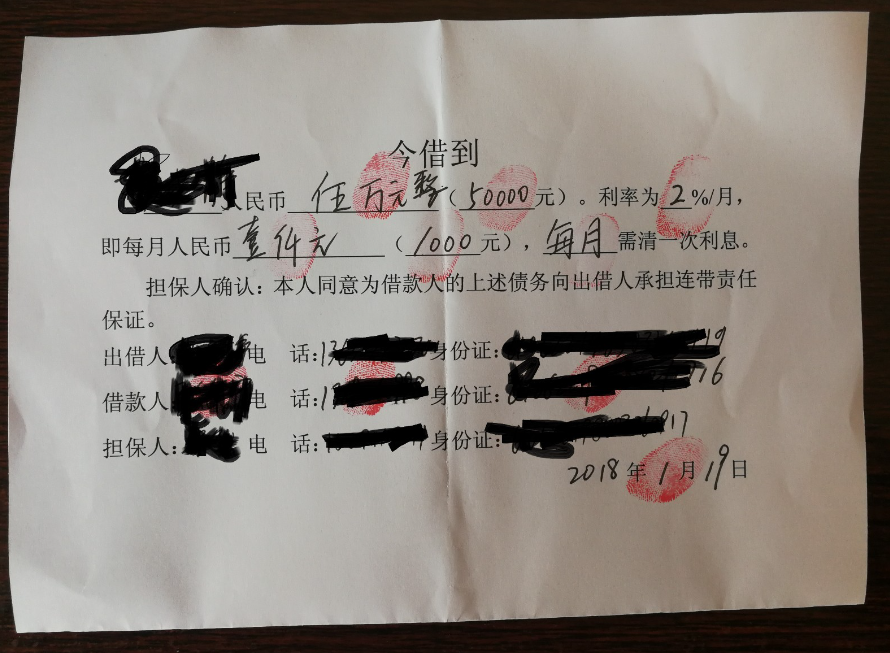 今借到
人民币 伍万元整（50000元）。利率为2%/月，
即每月人民币壹仟元（1000元），每月需清一次利息。
担保人确认：本人同意为借款人的上述债务向出借人承担连带责任
保证。
出借人: 电 话:13 身份证: 19
借款人 电 话:1 身份证: 76
担保人: 电 话: 身份证: 17
2018年1月19日